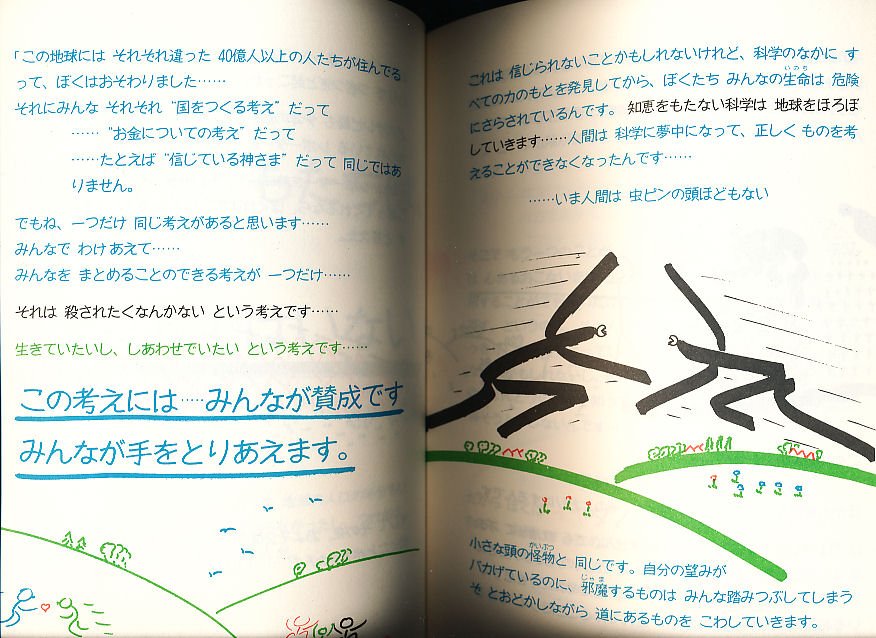 「この地球には それぞれ違った 40億人以上の人たちが住んでる
って、ぼくはおそわりました……
それにみんな それぞれ “国をつくる考え” だって
…… “お金についての考え” だって
……たとえば “信じている神さま” だって 同じではあ
りません。
でもね、一つだけ 同じ考えがあると思います……
みんなで わけあえて……
みんなを まとめることのできる考えが 一つだけ……
それは 殺されたくなんかない という考えです……
生きていたいし、しあわせでいたい という考えです……
この考えには……みんなが賛成です
みんなが手をとりあえます。
これは 信じられないことかもしれないけれど、科学のなかに す
べての力のもとを発見してから、ぼくたち みんなの生命は 危険
いのち
にさらされているんです。 知恵をもたない科学は 地球をほろぼ
していきます……人間は 科学に夢中になって、正しく ものを考
えることができなくなったんです……
……いま人間は 虫ピンの頭ほどもない
小さな頭の怪物と 同じです。自分の望みが
かいぶつ
バカげているのに、邪魔するものは みんな踏みつぶしてしまう
じゃま
ぞ とおどかしながら 道にあるものを こわしていきます。